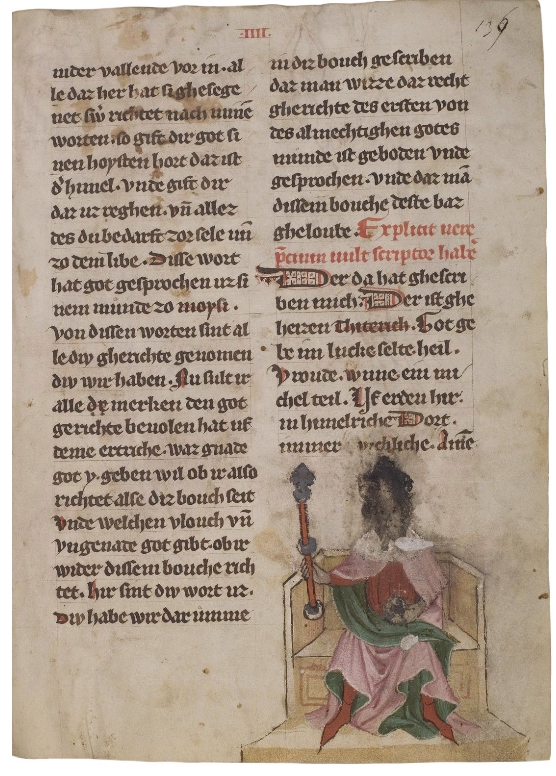 ·IIII·
139
nider vallende vor in· al
le daz her hat si ghesege
net sw̄ richtet nach minē
worten· so gift dir got si
nen hoysten hort daz ist
d' himel· vnde gift dir
daz uz reghen· vn̄ allez
des du bedarft zor sele un̄
zo dem libe· Disse wort
hat got gesprochen uz si
nem munde zo moysi·
Von dissen worten sint al
le diy gherichte genomen
diy wir haben· Nu sult ir
alle merken den got
gerichte beuolen hat uf
deme ertriche· waz gnade
got v· geben wil ob ir also
richtet alse diz bouch seit
Vnde welchen vlouch vn̄
vngenade got gibt· ob ir
wider dissem bouche rich
tet· hir sint diy wort uz·
Diy habe wir dar umme
in diz bouch gescriben
daz man wizze daz recht
gherichte des ersten von
des almechtighen gotes
munde ist geboden vnde
gesprochen· vnde daz mā
dissem bouche deste baz
gheloube· Explicit
p̄cium uult scriptor habē
Der da hat ghescri
ben mich· Der ist ghe
heizen Got ge
be im lucke selte heil·
Vroude· wune em mi
chel teil· Vf erden hir·
in himelriche Dort·
immer Amē